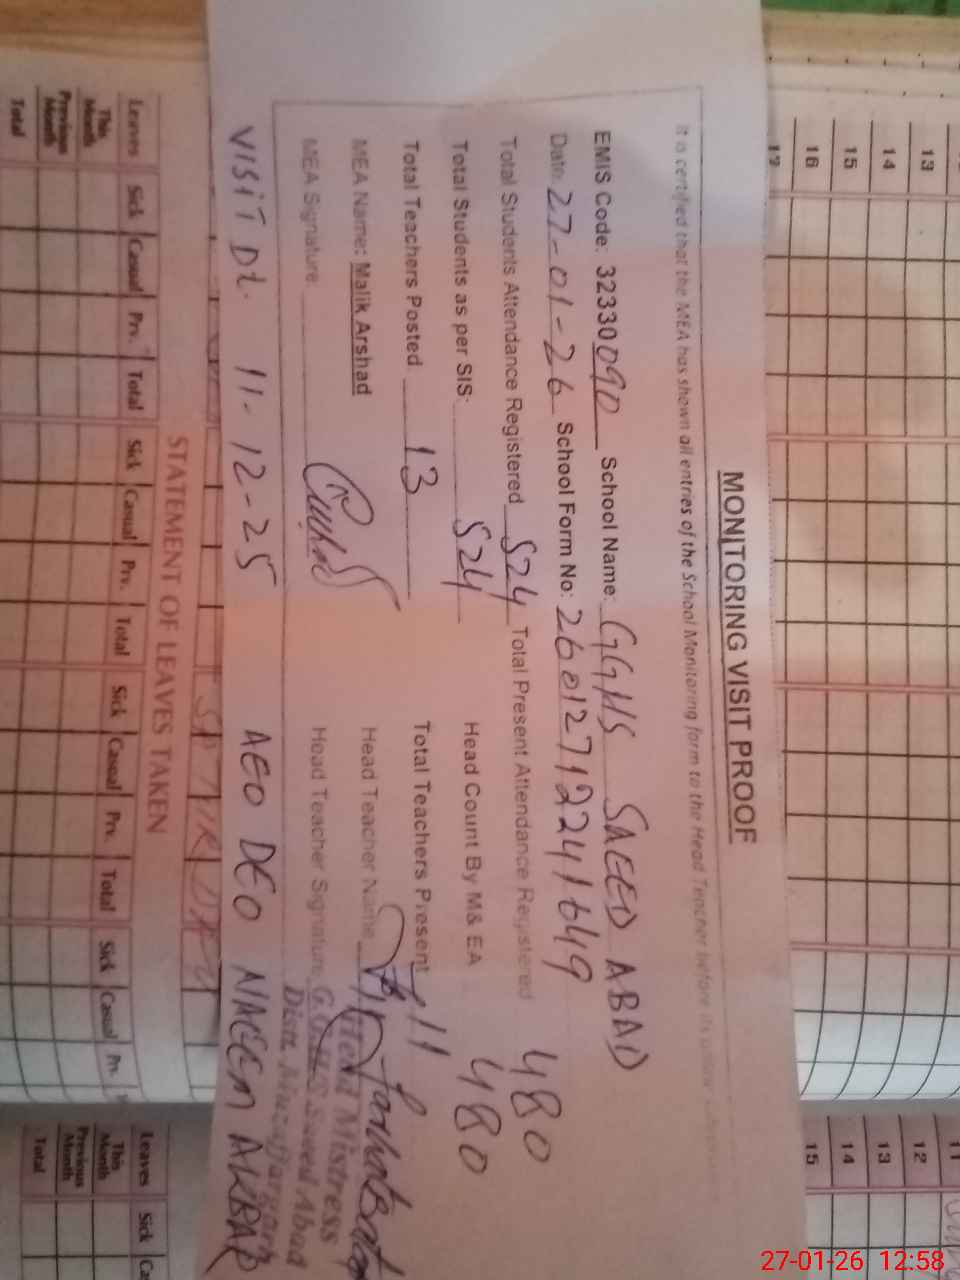 MONITORING VISIT PROOF
It is certified that the MEA has shown all entries of the School Monitoring form to the Head Teacher before its
EMIS Code: 32330090 School Name: GGHS SAEED ABAD
Date: 27-01-26 School Form No: 26012712241649
Total Students Attendance Registered 524 Total Present Attendance Registered 480
Total Students as per SIS: 524 Head Count By M& EA 480
Total Teachers Posted 13 Total Teachers Present 11
MEA Name: Malik Arshad Head Teacher Name
MEA Signature: Head Teacher Signature
Head Mistress
Saeed Abad
Distt. Muzaffargarh
VISIT Dt. 11-12-25 AEO DEO NAEEM AKBAR
STATEMENT OF LEAVES TAKEN
Leaves Sick Casual Prv. Total Sick Casual Prv. Total Sick Casual Prv. Total Sick Casual Prv.
This Month
Previous Month
Total
13
14
15
16
17
11
12
13
14
15
Leaves Sick
This Month
Previous Month
Total
27-01-26 12:58